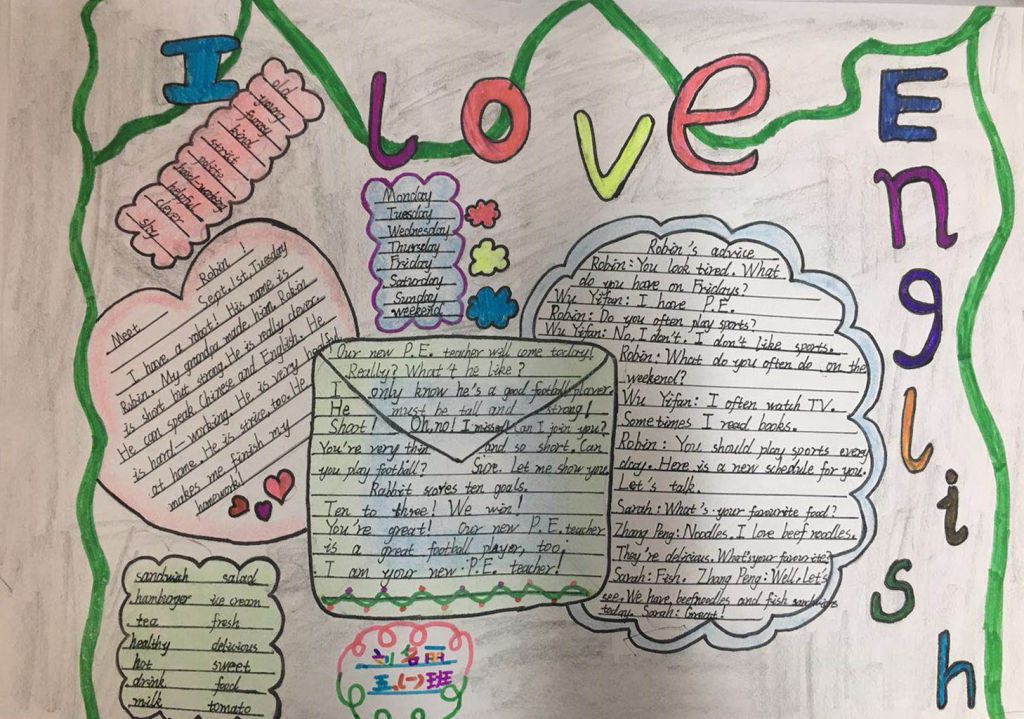 I love English
old
young
funny
kind
strict
polite
hard-working
helpful
clever
shy
Monday
Tuesday
Wednesday
Thursday
Friday
Saturday
Sunday
weekend
Meet Robin!
Sept. 1st. Tuesday
I have a robot! His name is
Robin. My grandpa made him. Robin
is short but strong. He is really clever.
He can speak Chinese and English. He
is hard-working. He is very helpful
at home. He is strice, too. He
makes me finish my
homework!
Our new P.E. teacher will come today!
Really? What's he like?
I only know he's a good football player.
He must be tall and strong!
Shoot! Oh, no! I missed Can I join you?
You're very thin and so short. Can
you play football? Sure. Let me show you.
Rabbit saves ten goals.
Ten to three! We win!
You're great! Our new P.E. teacher
is a great football player, too,
I am your new P.E. teacher!
Robin's advice
Robin: You look tired. What
do you have on Fridays?
Wu Yifan: I have P.E.
Robin: Do you often play sports?
Wu Yifan: No, I don't. I don't like sports.
Robin: What do you often do on the
weekend?
Wu Yifan: I often watch TV.
Sometimes I read books.
Robin: You should play sports every
day. Here is a new schedule for you.
Let's talk.
Sarah: What's your favourite food?
Zhang Peng: Noodles. I love beef noodles.
They're delicious. What's your favorite?
Sarah: Fish. Zhang Peng: Well, Let's
see. We have beefneedles and fish sandwichs
today. Sarah: Great!
sandwich salad
hamburger ice cream
tea fresh
healthy delicious
hot sweet
drink food
milk tomato
刘名丽
五.(一)班